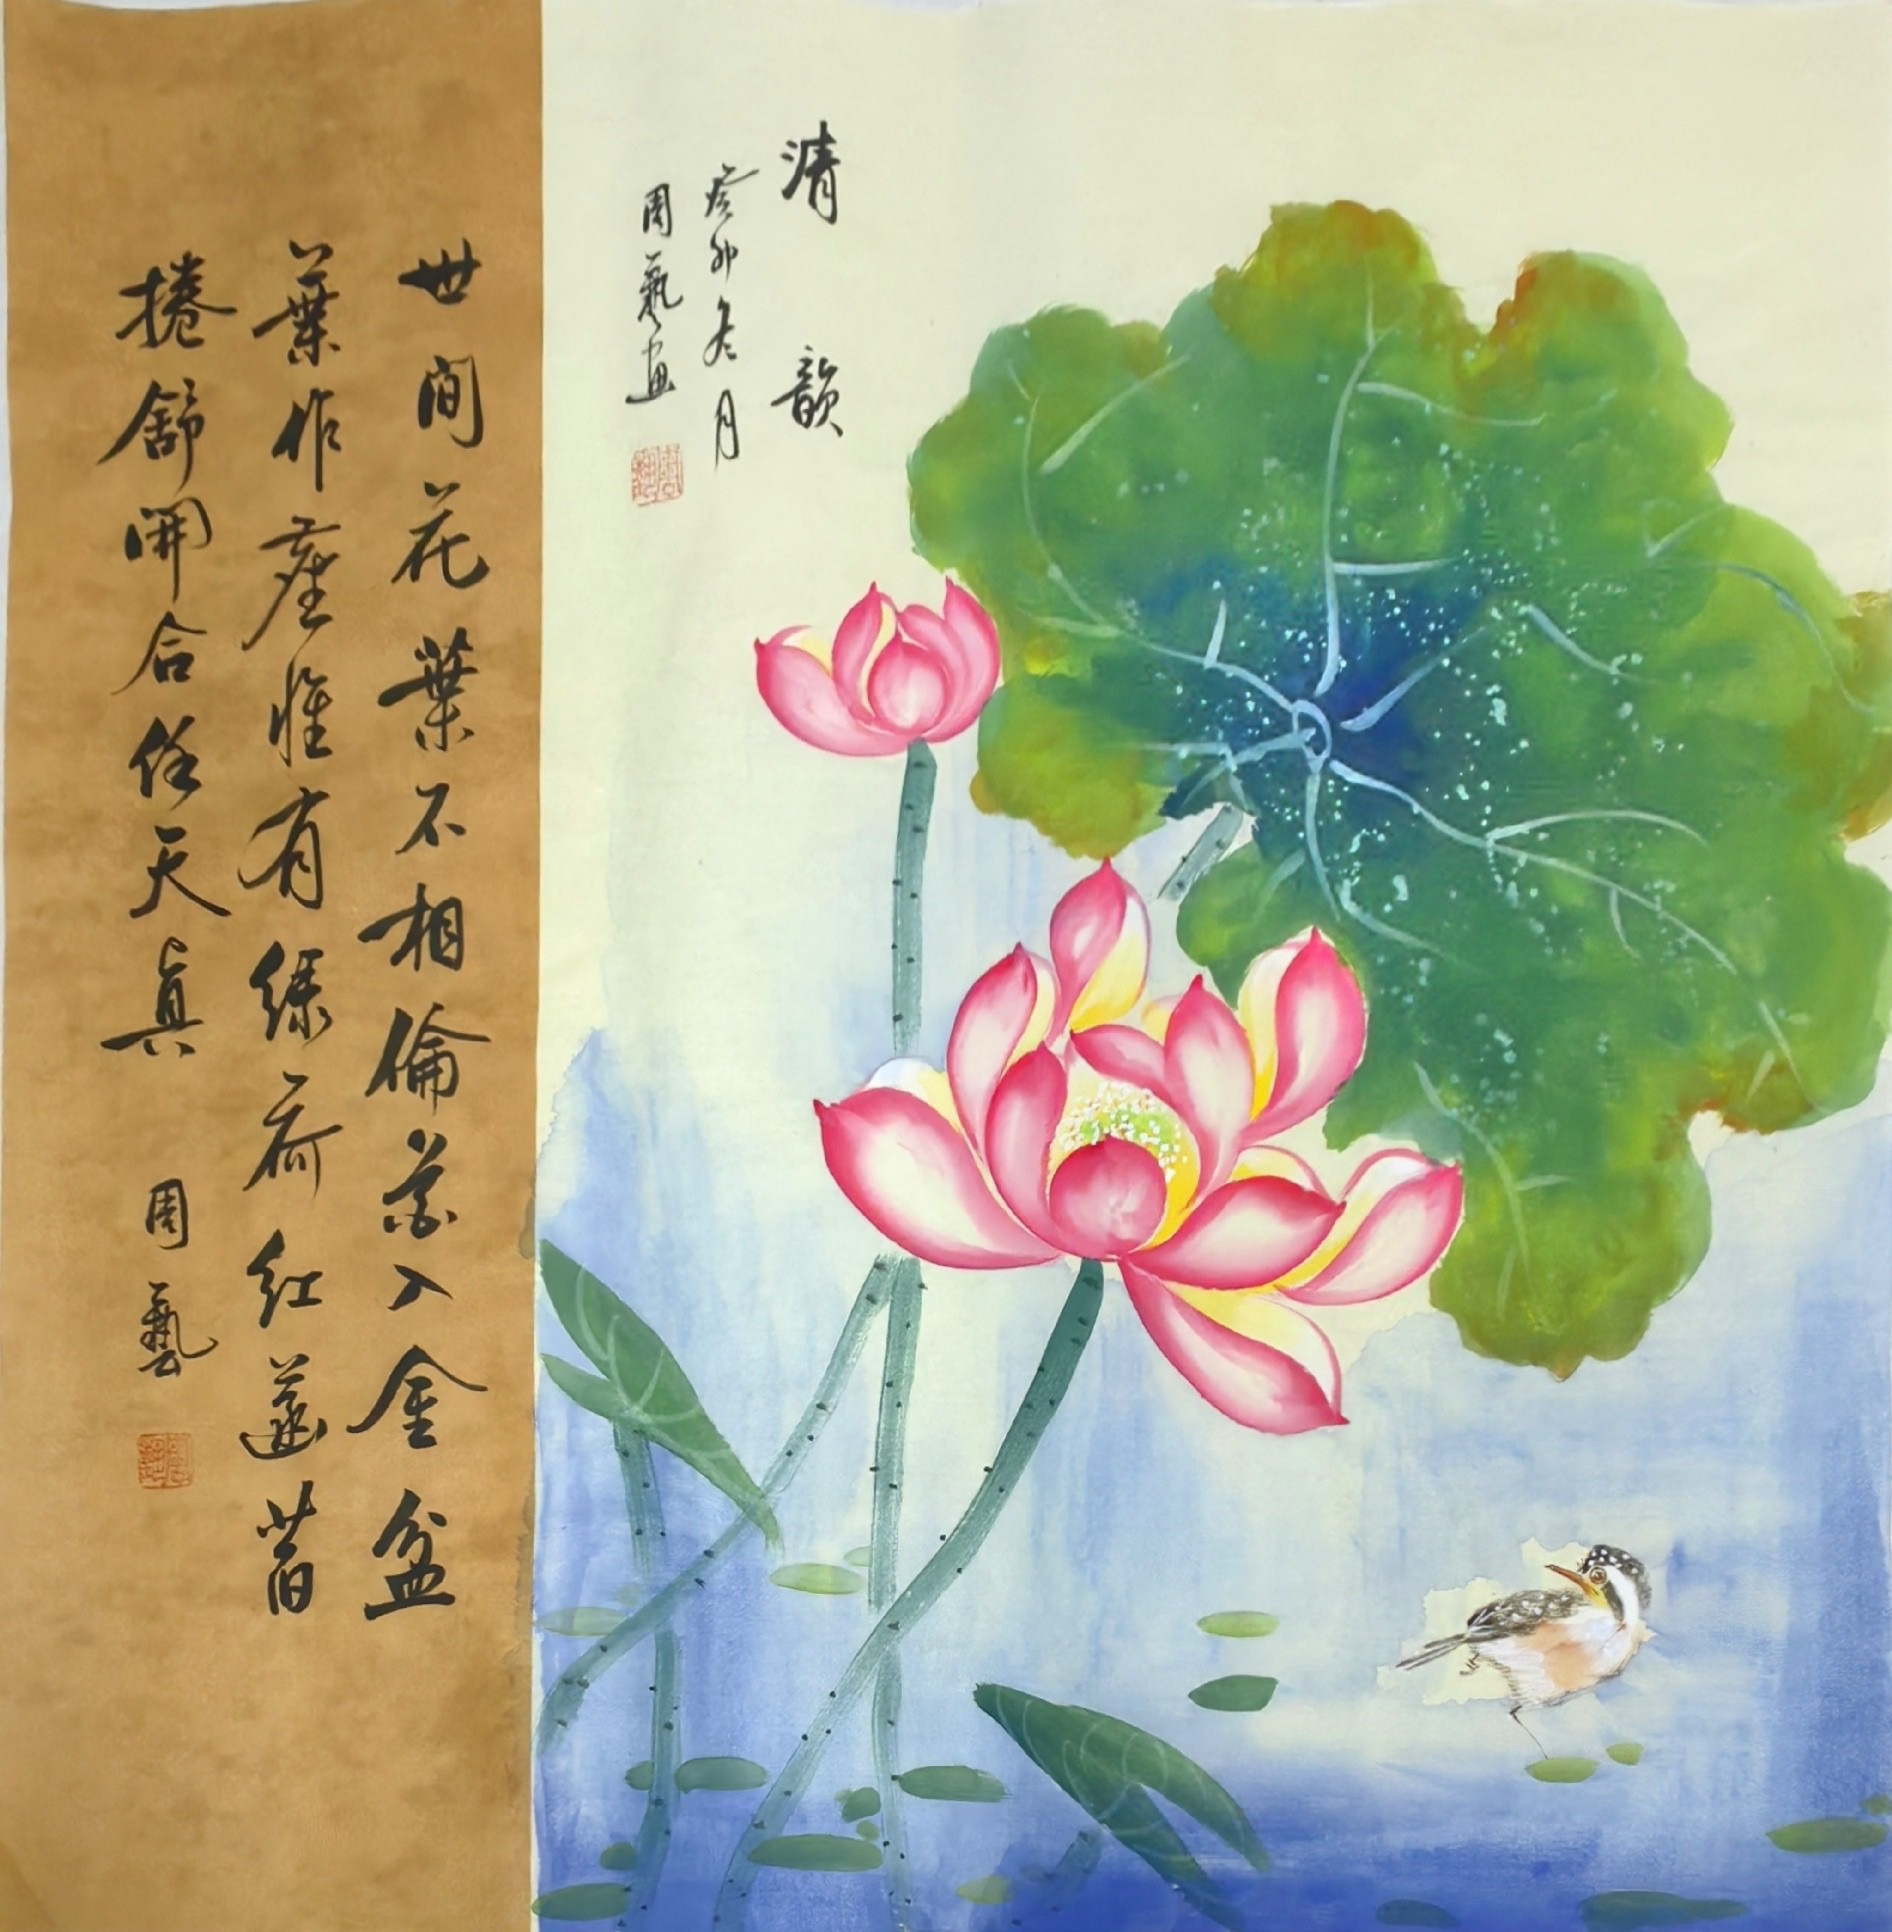 清韻
癸卯冬月
周藝画
世間花葉不相倫花入金盆
葉作塵惟有綠荷紅菡萏
捲舒開合任天真
周藝